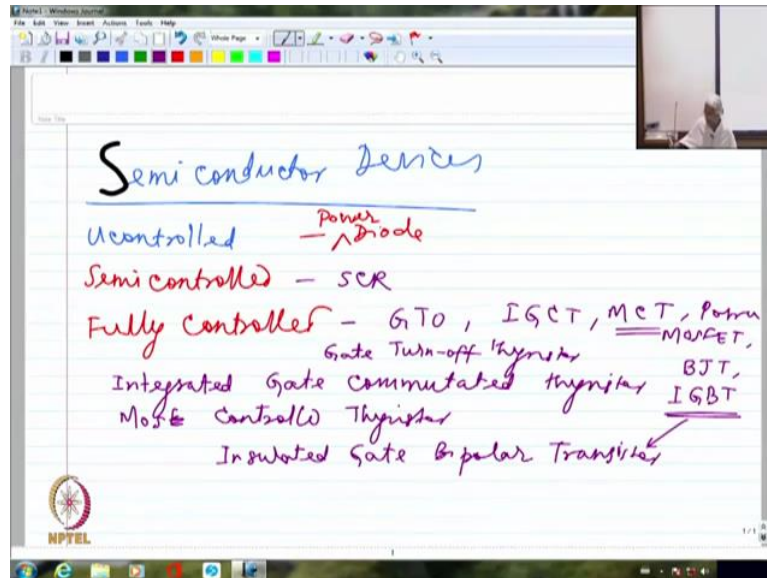 Note1 - Windows Journal
File Edit View Insert Actions Tools Help
Whole Page
B I
Note Title
Semiconductor Devices
Ucontrolled - Power Diode
Semicontrolled - SCR
Fully Controller - GTO, IGCT, MCT, Power
MOSFET,
Gate Turn-off Thyristor
BJT,
Integrated Gate Commutated Thyristor
IGBT
Controlled Thyristor
Insulated Gate Bipolar Transistor
NPTEL
1/1